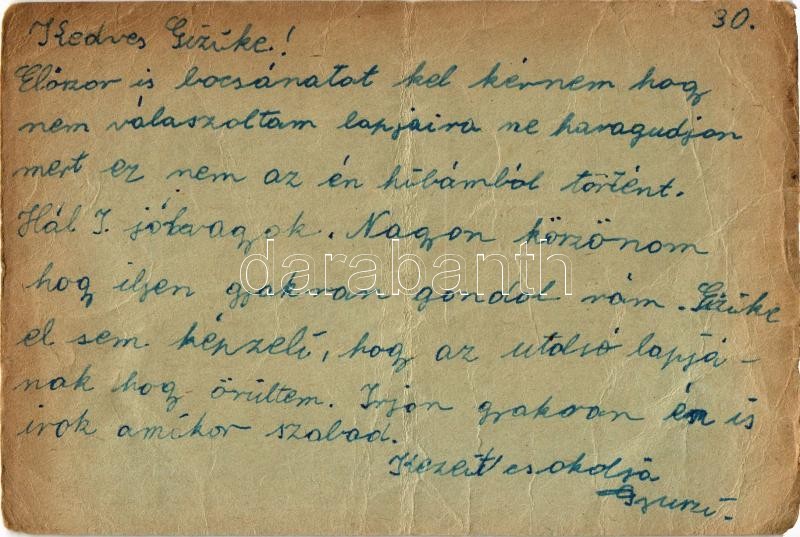 30.
Kedves Gizike!
Előszor is bocsánatot kel kérnem hog
nem válaszoltam lapjaira ne haragudjon
mert ez nem az én hibámból történt.
Hál I. jól vagok. Nagon köszönom
hog iljen gyakran gondol rám. Gizike
darabanth
el sem képzeli, hog az utolsó lapjá-
nak hog örültem. Irjon gyakran én is
irok amikor szabad.
Kezeit csokolja